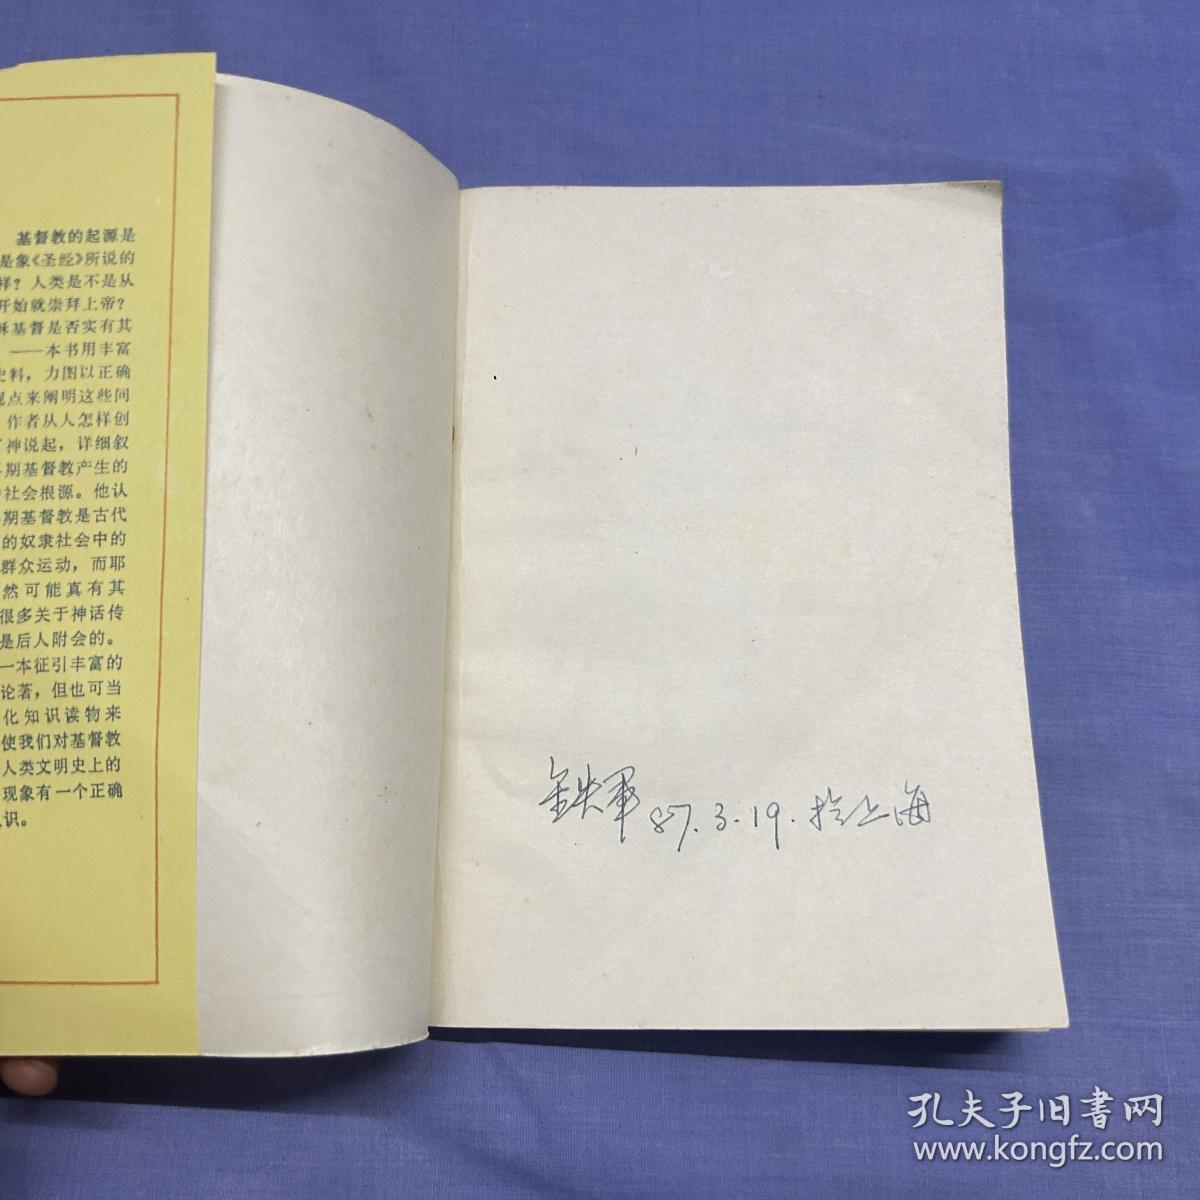 基督教的起源是
是象《圣经》所说的
样？人类是不是从
开始就崇拜上帝？
稣基督是否实有其
——本书用丰富
史料，力图以正确
观点来阐明这些问
作者从人怎样创
神说起，详细叙
期基督教产生的
社会根源。他认
期基督教是古代
的奴隶社会中的
群众运动，而耶
然可能真有其
很多关于神话传
是后人附会的。
一本征引丰富的
论著，但也可当
化知识读物来
使我们对基督教
人类文明史上的
现象有一个正确
识。
铁军 87.3.19.于上海
孔夫子旧书网
www.kongfz.com